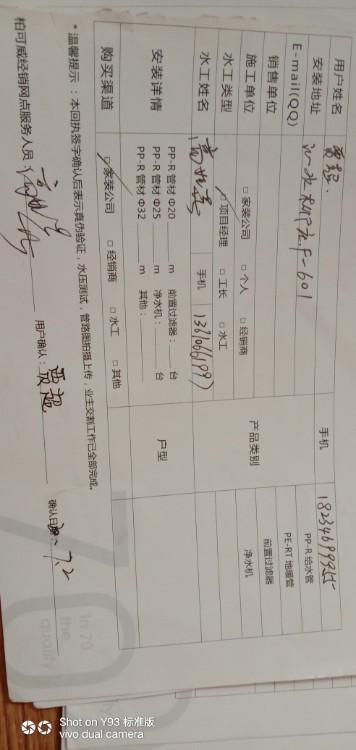 用户姓名 贾超 手机 18234699355
安装地址
E-mail(QQ) PP-R 给水管
销售单位 PE-RT 地暖管
施工单位 □ 家装公司 □ 个人 □ 经销商 产品类别 前置过滤器
水工类型 项目经理 □ 工长 □ 水工 净水机
水工姓名 手机
安装详情 PP-R 管材 Φ20 m 前置过滤器: 台 户型
PP-R 管材 Φ25 m 净水机: 台
PP-R 管材 Φ32 m 其他:
购买渠道 家装公司 □ 经销商 □ 水工 □ 其他
* 温馨提示:本回执签字确认后表示真伪验证,水压测试,管路图拍摄上传,业主交割工作已全部完成。
柏可威经销网点服务人员: 用户确认: 贾超 确认日期: 7.2
In 70
the
quality
Shot on Y93 标准版
vivo dual camera